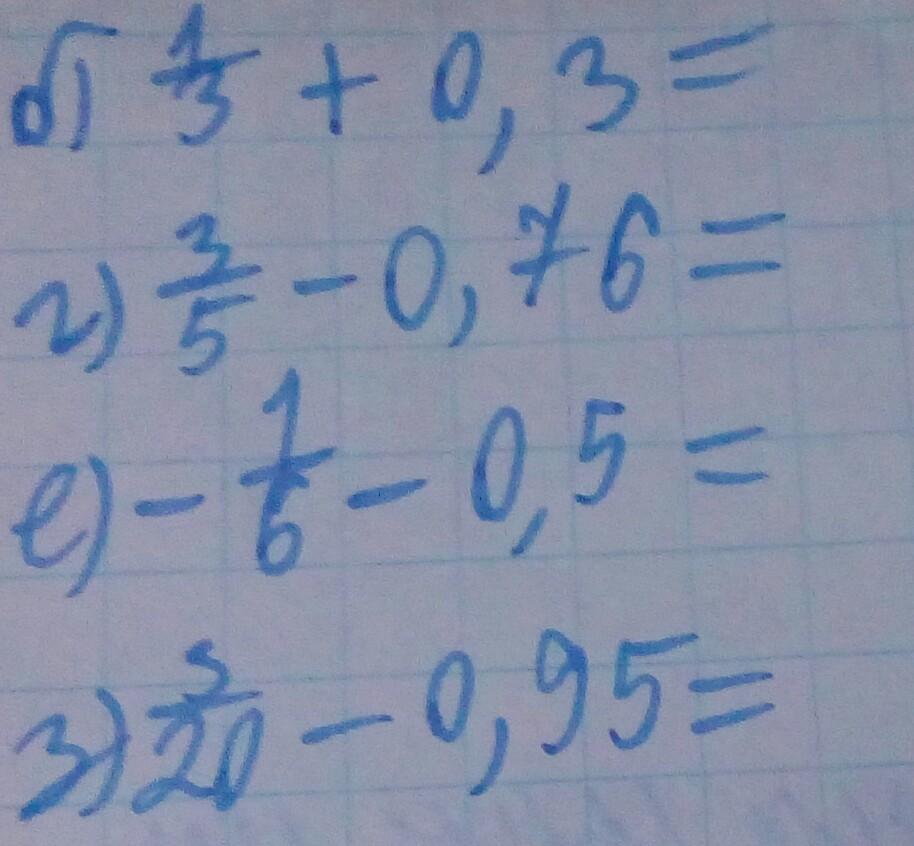 б) 1/3 + 0,3 =
г) 3/5 - 0,76 =
е) - 1/6 - 0,5 =
з) 3/20 - 0,95 =